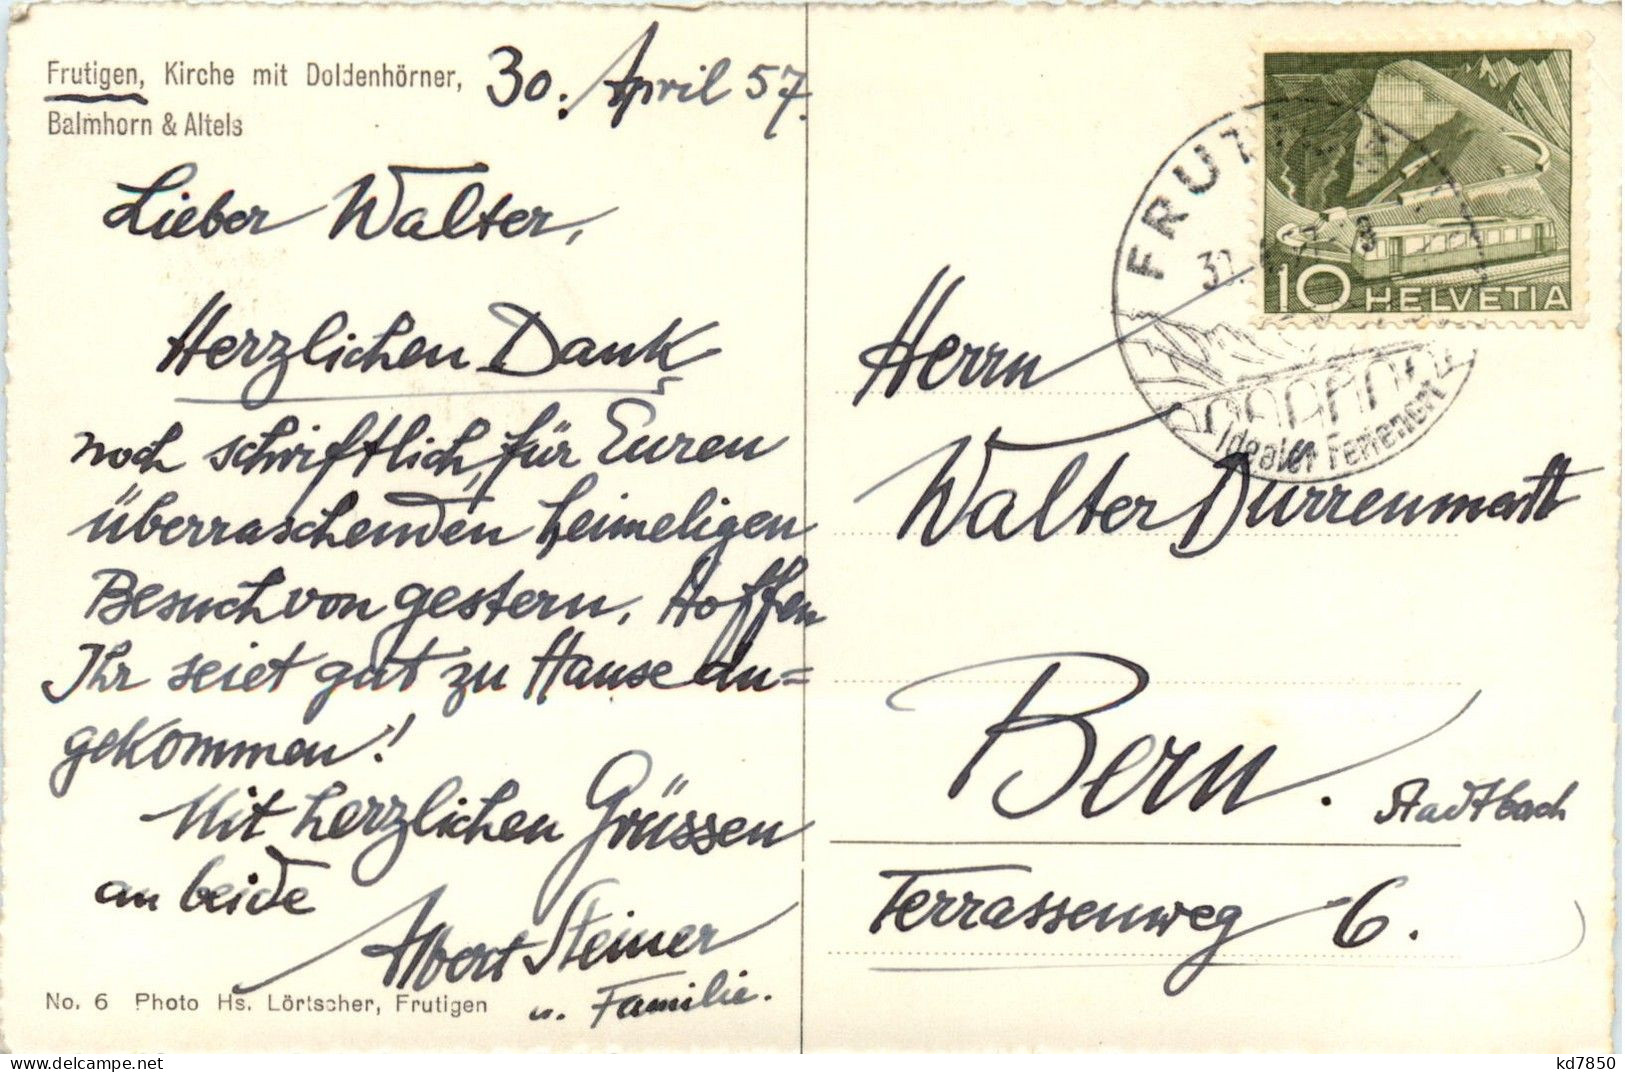 Frutigen, Kirche mit Doldenhörner,
Balmhorn & Altels
30. April 57.
Lieber Walter,
Herzlichen Dank
noch schriftlich, für Euren
überraschenden heimeligen
Besuch von gestern. Hoffen
Ihr seiet gut zu Hause an=
gekommen!
Mit herzlichen Grüssen
an beide
Albert Steiner
u. Familie.
No. 6 Photo Hs. Lörtscher, Frutigen
10 HELVETIA
Idealer Ferienort
Herrn
Walter Dürrenmatt
Bern. Stadtbach
Terrassenweg 6.
kd7850